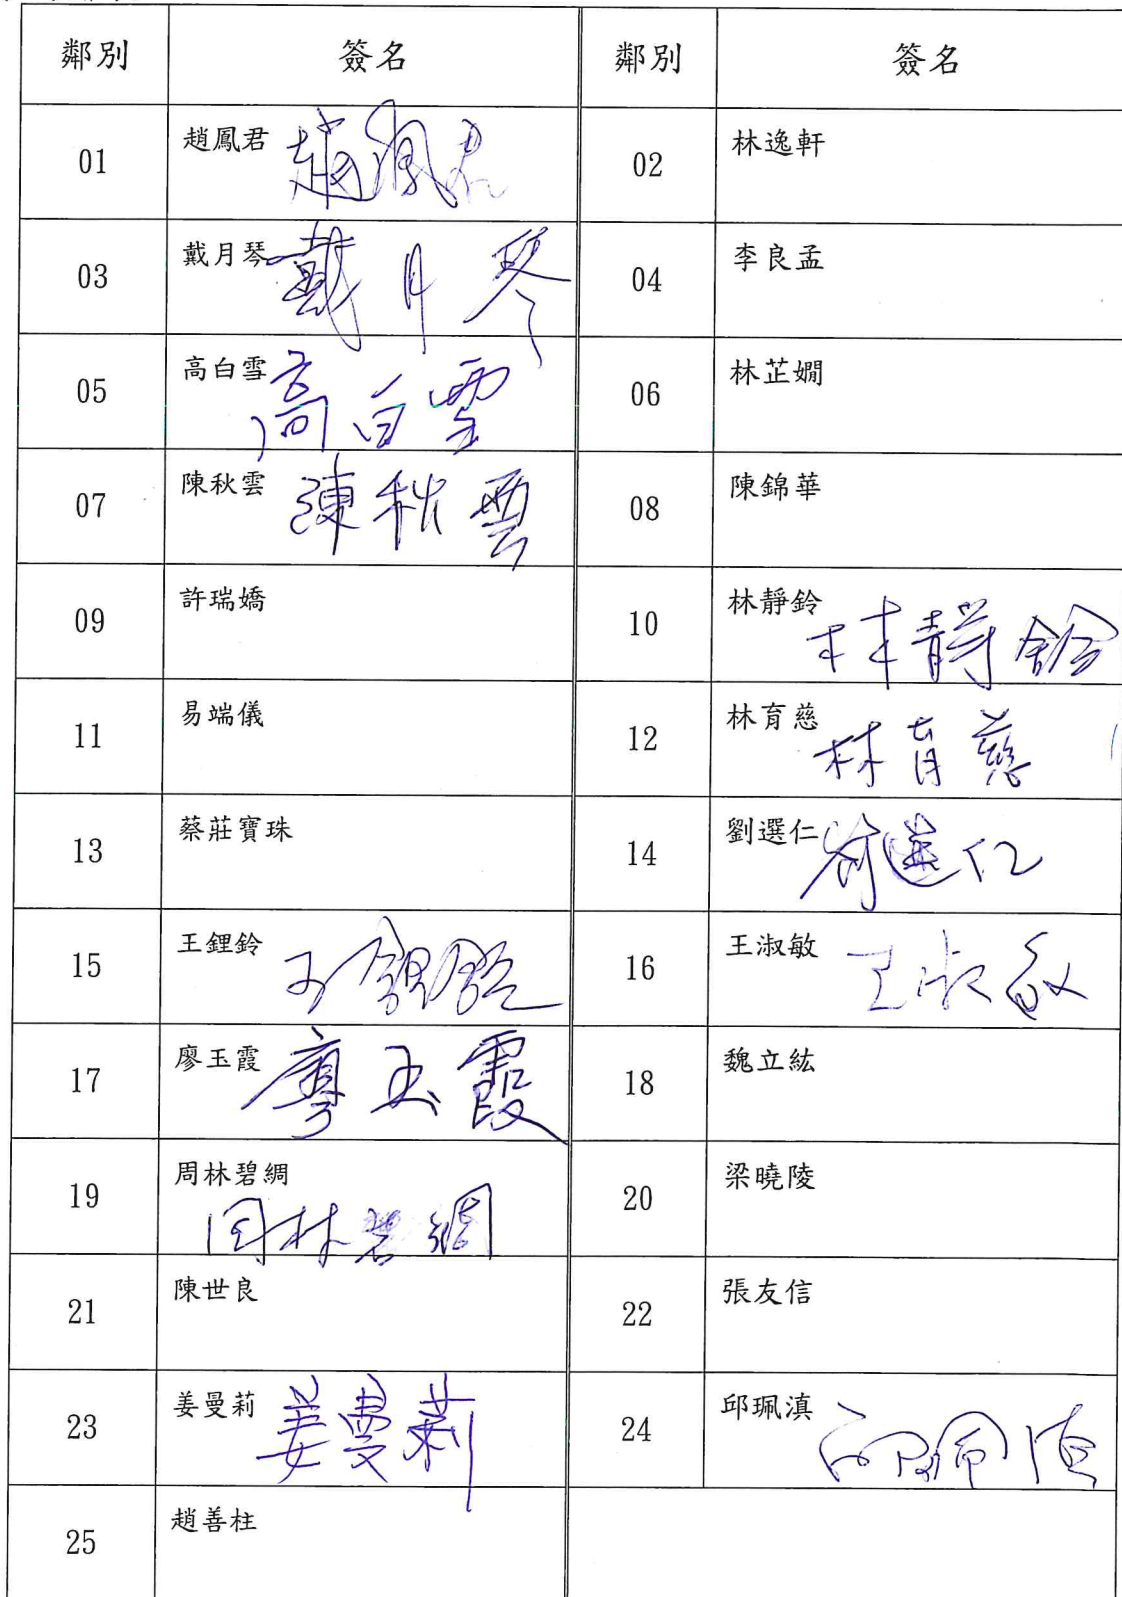 鄰別 簽名 鄰別 簽名
01 趙鳳君 趙鳳君 02 林逸軒
03 戴月琴 戴月琴 04 李良孟
05 高白雪 高白雪 06 林芷嫺
07 陳秋雲 陳秋雲 08 陳錦華
09 許瑞嬌 10 林靜鈴 林靜鈴
11 易端儀 12 林育慈 林育慈
13 蔡莊寶珠 14 劉選仁 劉選仁
15 王鋰鈴 王鋰鈴 16 王淑敏 王淑敏
17 廖玉霞 廖玉霞 18 魏立紘
19 周林碧綢 周林碧綢 20 梁曉陵
21 陳世良 22 張友信
23 姜曼莉 姜曼莉 24 邱珮滇 邱珮滇
25 趙善柱